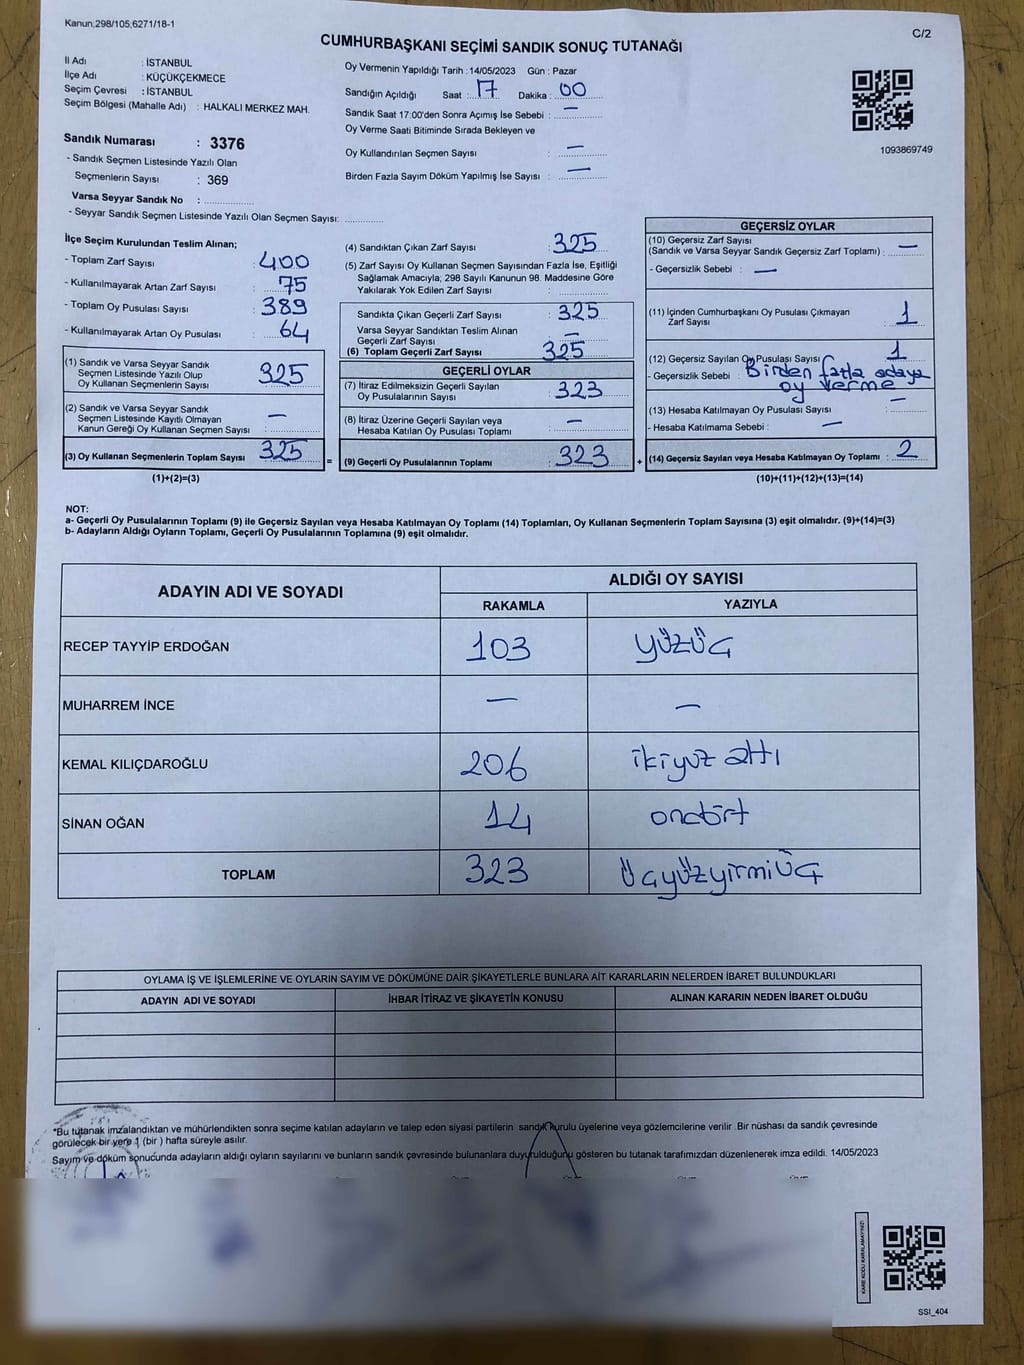 Kanun.298/105,6271/18-1
C/2
CUMHURBAŞKANI SEÇİMİ SANDIK SONUÇ TUTANAĞI
İl Adı : İSTANBUL
İlçe Adı : KÜÇÜKÇEKMECE
Seçim Çevresi : İSTANBUL
Seçim Bölgesi (Mahalle Adı) : HALKALI MERKEZ MAH.
Sandık Numarası : 3376
- Sandık Seçmen Listesinde Yazılı Olan
Seçmenlerin Sayısı : 369
Varsa Seyyar Sandık No :
- Seyyar Sandık Seçmen Listesinde Yazılı Olan Seçmen Sayısı:
Oy Vermenin Yapıldığı Tarih :14/05/2023 Gün : Pazar
Sandığın Açıldığı Saat : 17 Dakika : 00
Sandık Saat 17:00'den Sonra Açımış İse Sebebi : —
Oy Verme Saati Bitiminde Sırada Bekleyen ve
Oy Kullandırılan Seçmen Sayısı : —
Birden Fazla Sayım Döküm Yapılmış İse Sayısı : —
1093869749
İlçe Seçim Kurulundan Teslim Alınan;
- Toplam Zarf Sayısı : 400
- Kullanılmayarak Artan Zarf Sayısı : 75
- Toplam Oy Pusulası Sayısı : 389
- Kullanılmayarak Artan Oy Pusulası : 64
(1) Sandık ve Varsa Seyyar Sandık
Seçmen Listesinde Yazılı Olup
Oy Kullanan Seçmenlerin Sayısı : 325
(2) Sandık ve Varsa Seyyar Sandık
Seçmen Listesinde Kayıtlı Olmayan
Kanun Gereği Oy Kullanan Seçmen Sayısı : —
(3) Oy Kullanan Seçmenlerin Toplam Sayısı : 325
(1)+(2)=(3)
(4) Sandıktan Çıkan Zarf Sayısı : 325
(5) Zarf Sayısı Oy Kullanan Seçmen Sayısından Fazla İse, Eşitliği
Sağlamak Amacıyla; 298 Sayılı Kanunun 98. Maddesine Göre
Yakılarak Yok Edilen Zarf Sayısı :
Sandıkta Çıkan Geçerli Zarf Sayısı : 325
Varsa Seyyar Sandıktan Teslim Alınan
Geçerli Zarf Sayısı : —
(6) Toplam Geçerli Zarf Sayısı : 325
GEÇERLİ OYLAR
(7) İtiraz Edilmeksizin Geçerli Sayılan
Oy Pusulalarının Sayısı : 323
(8) İtiraz Üzerine Geçerli Sayılan veya
Hesaba Katılan Oy Pusulası Toplamı : —
= (9) Geçerli Oy Pusulalarının Toplamı : 323 +
GEÇERSİZ OYLAR
(10) Geçersiz Zarf Sayısı
(Sandık ve Varsa Seyyar Sandık Geçersiz Zarf Toplamı) : —
- Geçersizlik Sebebi : —
(11) İçinden Cumhurbaşkanı Oy Pusulası Çıkmayan
Zarf Sayısı : 1
(12) Geçersiz Sayılan Oy Pusulası Sayısı : 1
- Geçersizlik Sebebi : Birden fazla adaya
oy verme
(13) Hesaba Katılmayan Oy Pusulası Sayısı : —
- Hesaba Katılmama Sebebi : —
(14) Geçersiz Sayılan veya Hesaba Katılmayan Oy Toplamı : 2
(10)+(11)+(12)+(13)=(14)
NOT:
a- Geçerli Oy Pusulalarının Toplamı (9) ile Geçersiz Sayılan veya Hesaba Katılmayan Oy Toplamı (14) Toplamları, Oy Kullanan Seçmenlerin Toplam Sayısına (3) eşit olmalıdır. (9)+(14)=(3)
b- Adayların Aldığı Oyların Toplamı, Geçerli Oy Pusulalarının Toplamına (9) eşit olmalıdır.
ADAYIN ADI VE SOYADI ALDIĞI OY SAYISI
RAKAMLA YAZIYLA
RECEP TAYYİP ERDOĞAN 103 YÜZÜÇ
MUHARREM İNCE — —
KEMAL KILIÇDAROĞLU 206 ikiyuz altı
SİNAN OĞAN 14 ondört
TOPLAM 323 ÜçyÜzyirmiÜç
OYLAMA İŞ VE İŞLEMLERİNE VE OYLARIN SAYIM VE DÖKÜMÜNE DAİR ŞİKAYETLERLE BUNLARA AİT KARARLARIN NELERDEN İBARET BULUNDUKLARI
ADAYIN ADI VE SOYADI İHBAR İTİRAZ VE ŞİKAYETİN KONUSU ALINAN KARARIN NEDEN İBARET OLDUĞU
*Bu tutanak imzalandıktan ve mühürlendikten sonra seçime katılan adayların ve talep eden siyasi partilerin sandık kurulu üyelerine veya gözlemcilerine verilir .Bir nüshası da sandık çevresinde
görülecek bir yere 1 (bir ) hafta süreyle asılır.
Sayım ve döküm sonucunda adayların aldığı oyların sayılarını ve bunların sandık çevresinde bulunanlara duyurulduğunu gösteren bu tutanak tarafımızdan düzenlenerek imza edildi. 14/05/2023
KARE KODU KARALAMAYINIZ!
SSI_404